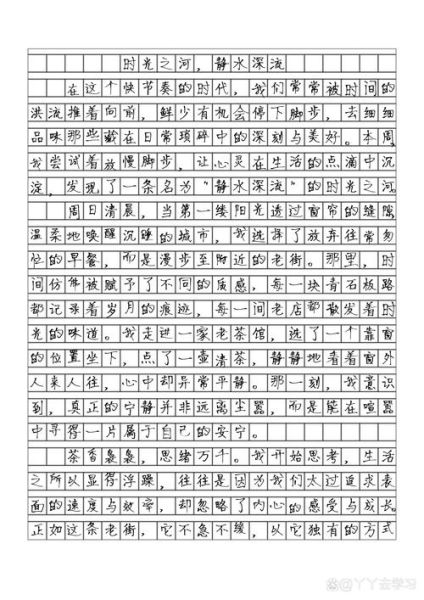 时光之河，静水深流
在这个快节奏的时代，我们常常被时间的
洪流推着向前，鲜少有机会停下脚步，去细细
品味那些藏在日常琐碎中的深刻与美好。本周，
我尝试着放慢脚步，让心灵在生活的点滴中沉
淀，发现了一条名为“静水深流”的时光之河。
周日清晨，当第一缕阳光透过窗帘的缝隙，
温柔地唤醒沉睡的城市，我选择了放弃往常匆
忙的早餐，而是漫步至附近的老街。那里，时
间仿佛被赋予了不同的质感，每一块青石板路
都记录着岁月的痕迹，每一间老店都散发着时
光的味道。我走进一家老茶馆，选了一个靠窗
的位置坐下，点了一壶清茶，静静地看着窗外
人来人往，心中却异常平静。那一刻，我意识
到，真正的宁静并非远离尘嚣，而是能在喧嚣
中寻得一片属于自己的安宁。
茶香袅袅，思绪万千。我开始思考，生活
之所以显得浮躁，往往是因为我们太过追求表
面的速度与效率，却忽略了内心的感受与成长。
正如这条老街，它不急不缓，以它独有的方式
@丫丫去学习